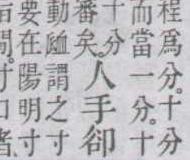 程爲分。十分
而當一分。十
十分
審矣。
人手卻
動衇謂之寸
要在陽明寸
間。寸口者